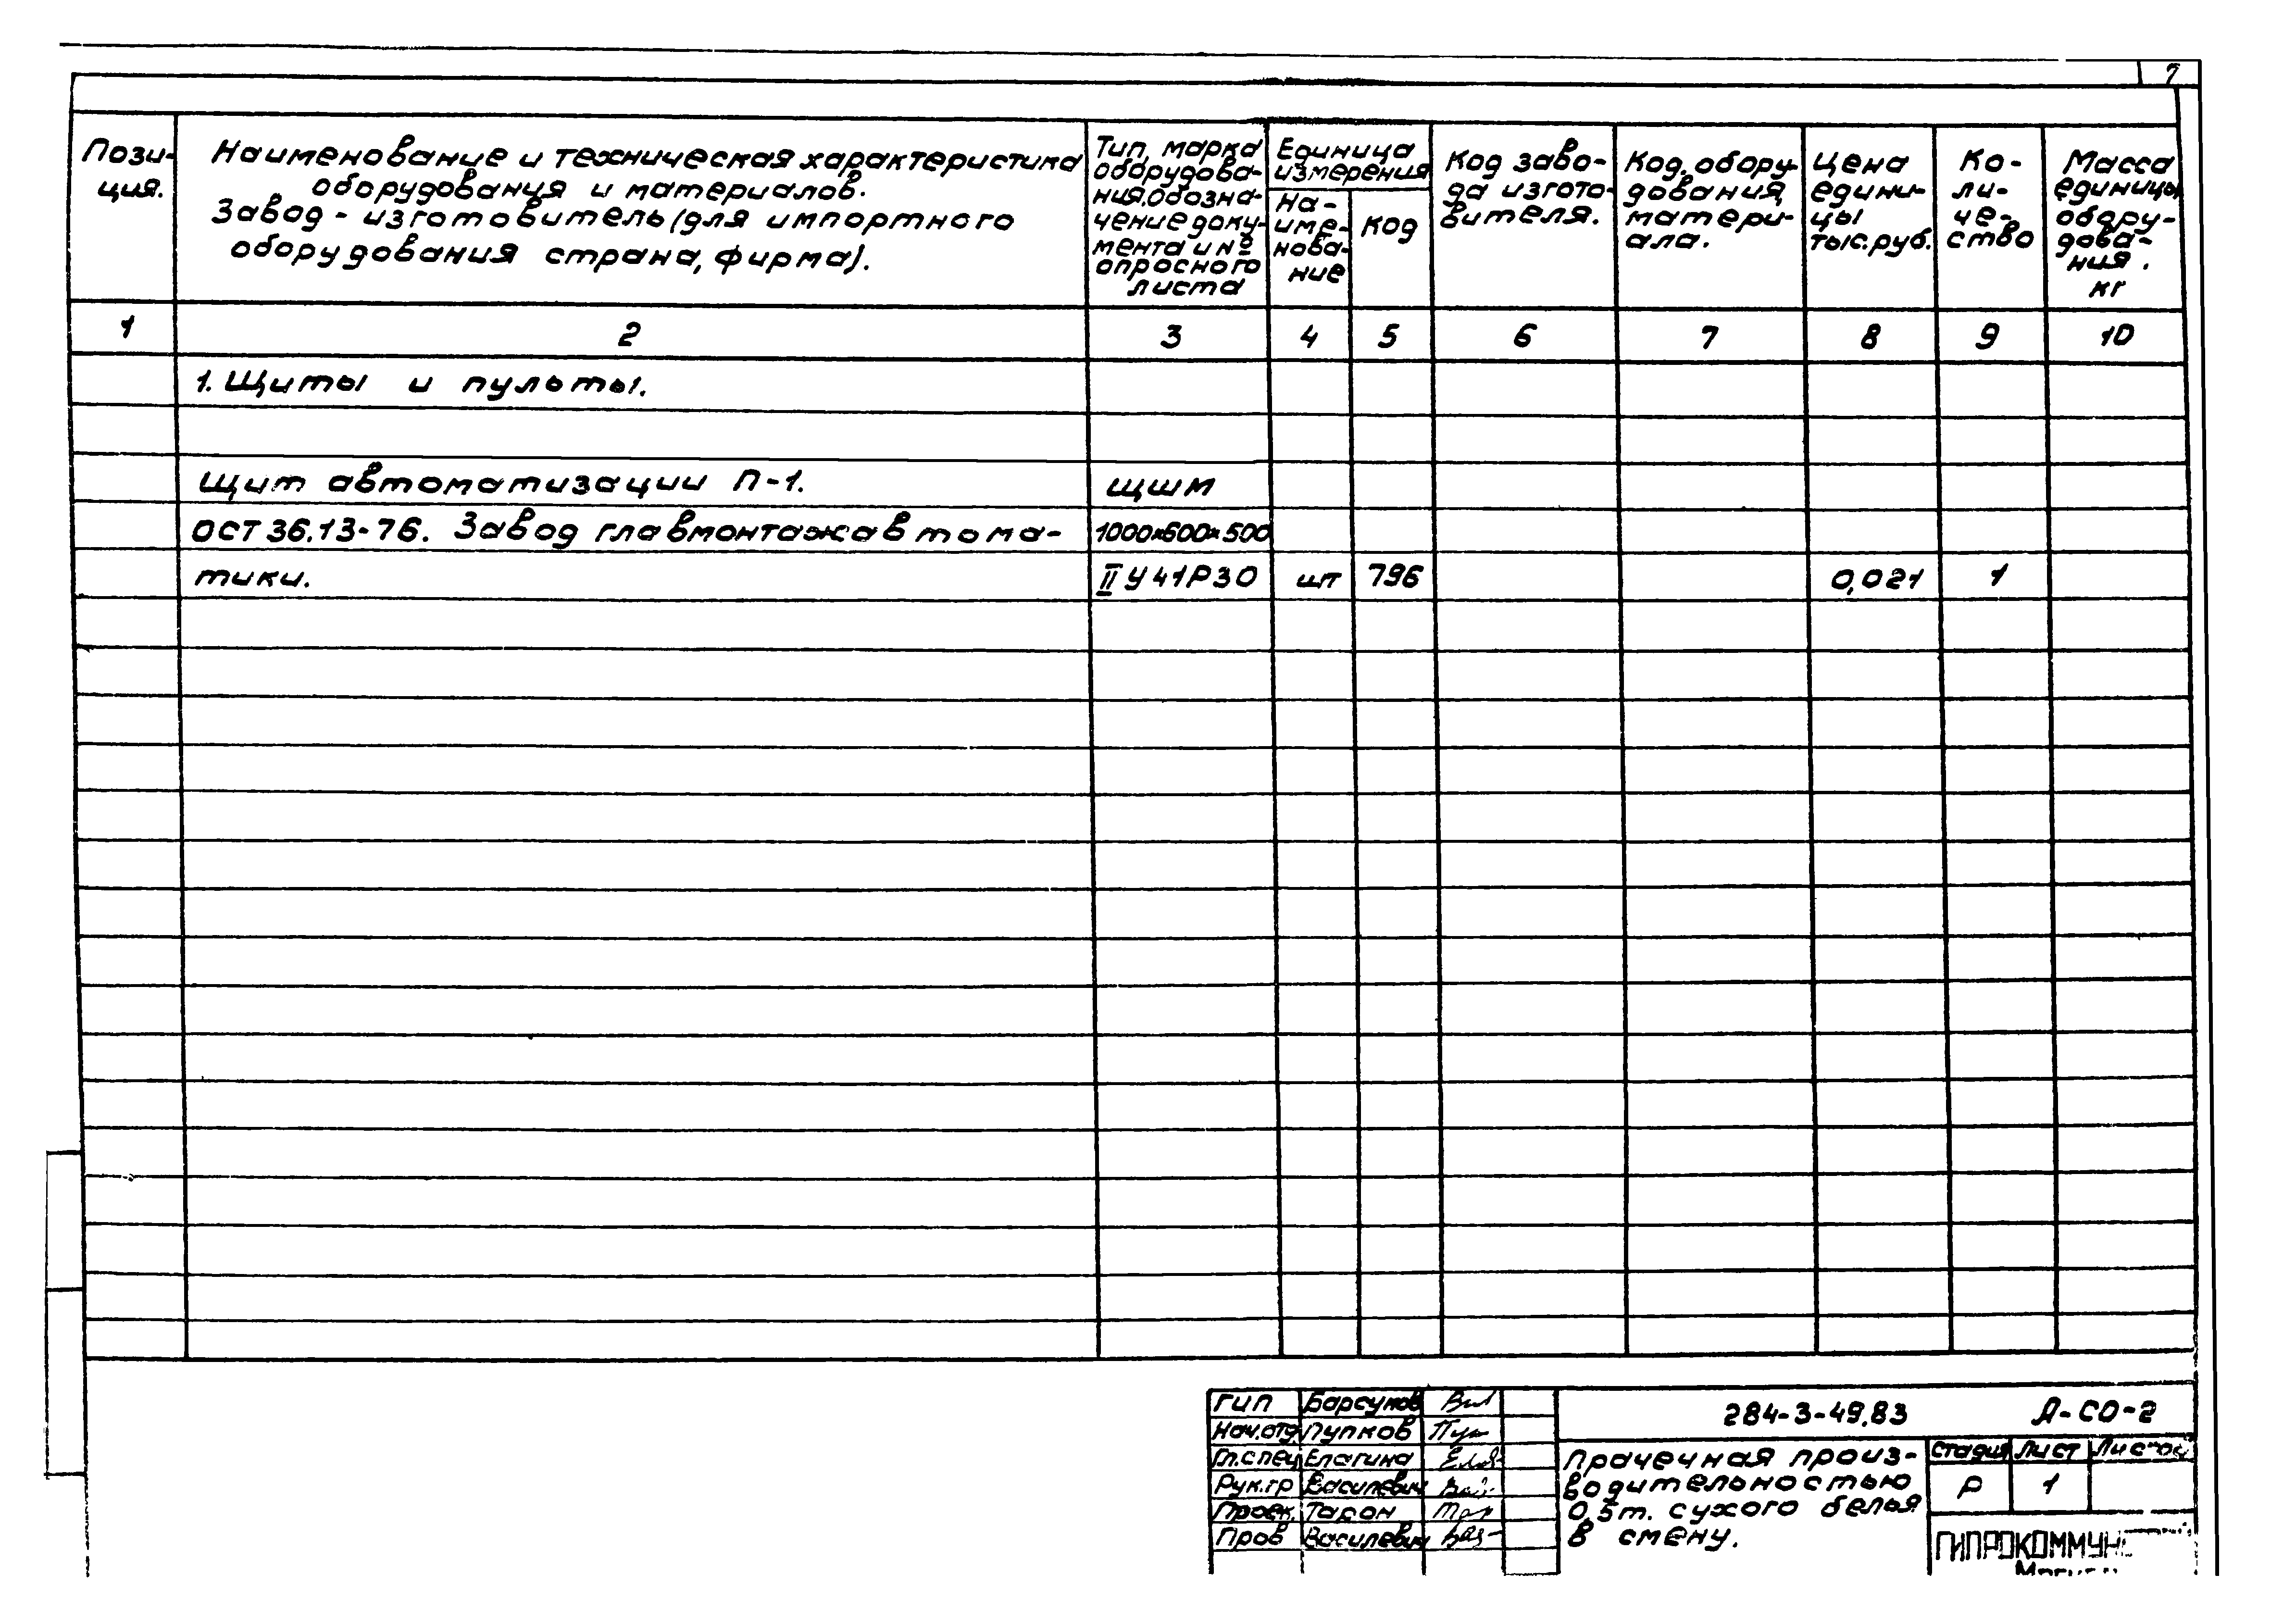 7
Пози-
ция.
Наименование и техническая характеристика
оборудования и материалов.
Завод - изготовитель (для импортного
оборудования страна, фирма).
Тип, марка
оборудова-
ния. Обозна-
чение доку-
мента и №
опросного
листа
Единица
измерения
На-
име-
нова-
ние
Код
Код заво-
да изгото-
вителя.
Код. обору-
дования,
матери-
ала.
Цена
едини-
цы
тыс.руб.
Ко-
ли-
че-
ство
Масса
единицы
обору-
дова-
ния.
кг
1 2 3 4 5 6 7 8 9 10
1. Щиты и пульты.
Щит автоматизации П-1. ЩШМ
ОСТ 36.13-76. Завод главмонтажавтома- 1000×600×500
тики. II У41Р30 шт 796 0,021 1
ГИП Барсуков
Нач.отд Пупков
Гл.спец Елагина
Рук.гр Василевич
Проек.
Пров Василевич
284-3-49.83 А-СО-2
Прачечная произ-
водительностью
0,5т. сухого белья
в смену.
Стадия Лист Листов
Р 1